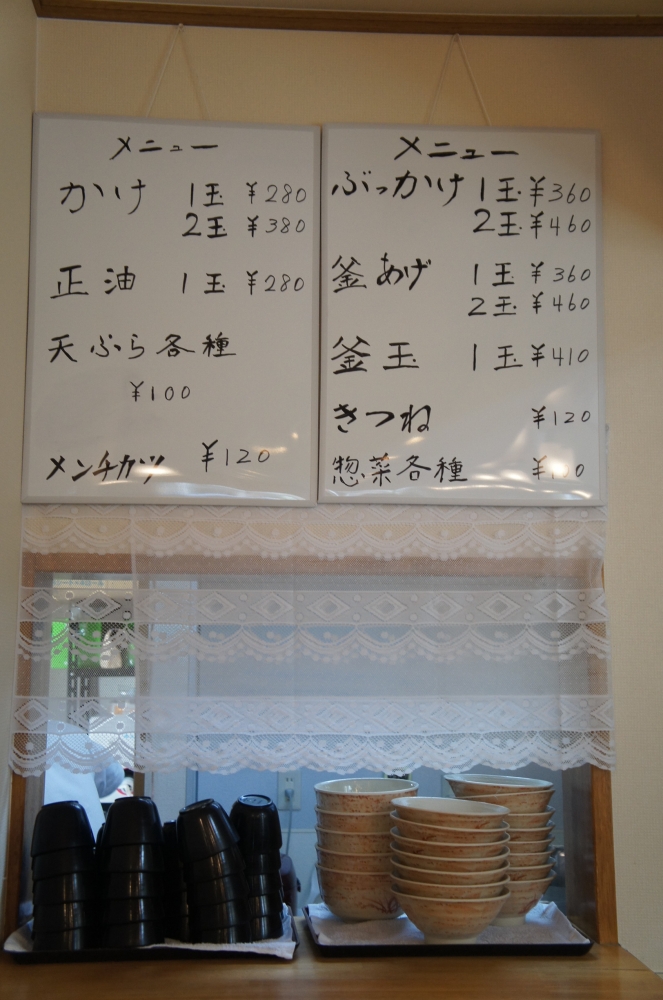 メニュー
かけ 1玉 ¥280
2玉 ¥380
正油 1玉 ¥280
天ぷら各種
¥100
メンチカツ ¥120
メニュー
ぶっかけ 1玉 ¥360
2玉 ¥460
釜あげ 1玉 ¥360
2玉 ¥460
釜玉 1玉 ¥410
きつね ¥120
惣菜各種